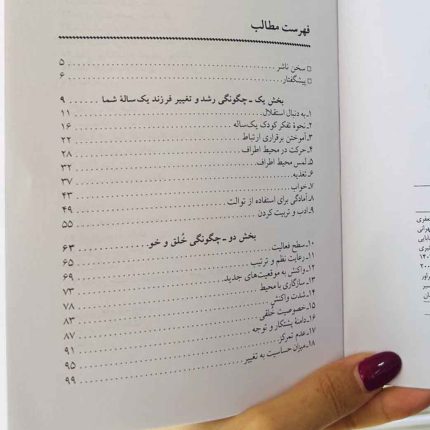 فهرست مطالب
□ سخن ناشر ۵
□ پیشگفتار ۶
بخش یک ـ چگونگی رشد و تغییر فرزند یک‌سالهٔ شما ۹
۱ـ به دنبال استقلال ۱۱
۲ـ نحوهٔ تفکر کودک یک‌ساله ۱۶
۳ـ آموختن برقراری ارتباط ۲۲
۴ـ حرکت در محیط اطراف ۲۸
۵ـ لمس محیط اطراف ۳۲
۶ـ تغذیه ۳۷
۷ـ خواب ۴۳
۸ـ آمادگی برای استفاده از توالت ۴۹
۹ـ ادب و تربیت کردن ۵۵
بخش دو ـ چگونگی خُلق و خو ۶۳
۱۰ـ سطح فعالیت ۶۵
۱۱ـ رعایت نظم و ترتیب ۶۹
۱۲ـ واکنش به موقعیت‌های جدید ۷۳
۱۳ـ سازگاری با محیط ۷۸
۱۴ـ شدت واکنش ۸۳
۱۵ـ خصوصیت خُلقی ۸۷
۱۶ـ دامنهٔ پشتکار و توجه ۹۱
۱۷ـ عدم تمرکز ۹۵
۱۸ـ میزان حساسیت به تغییر ۹۹